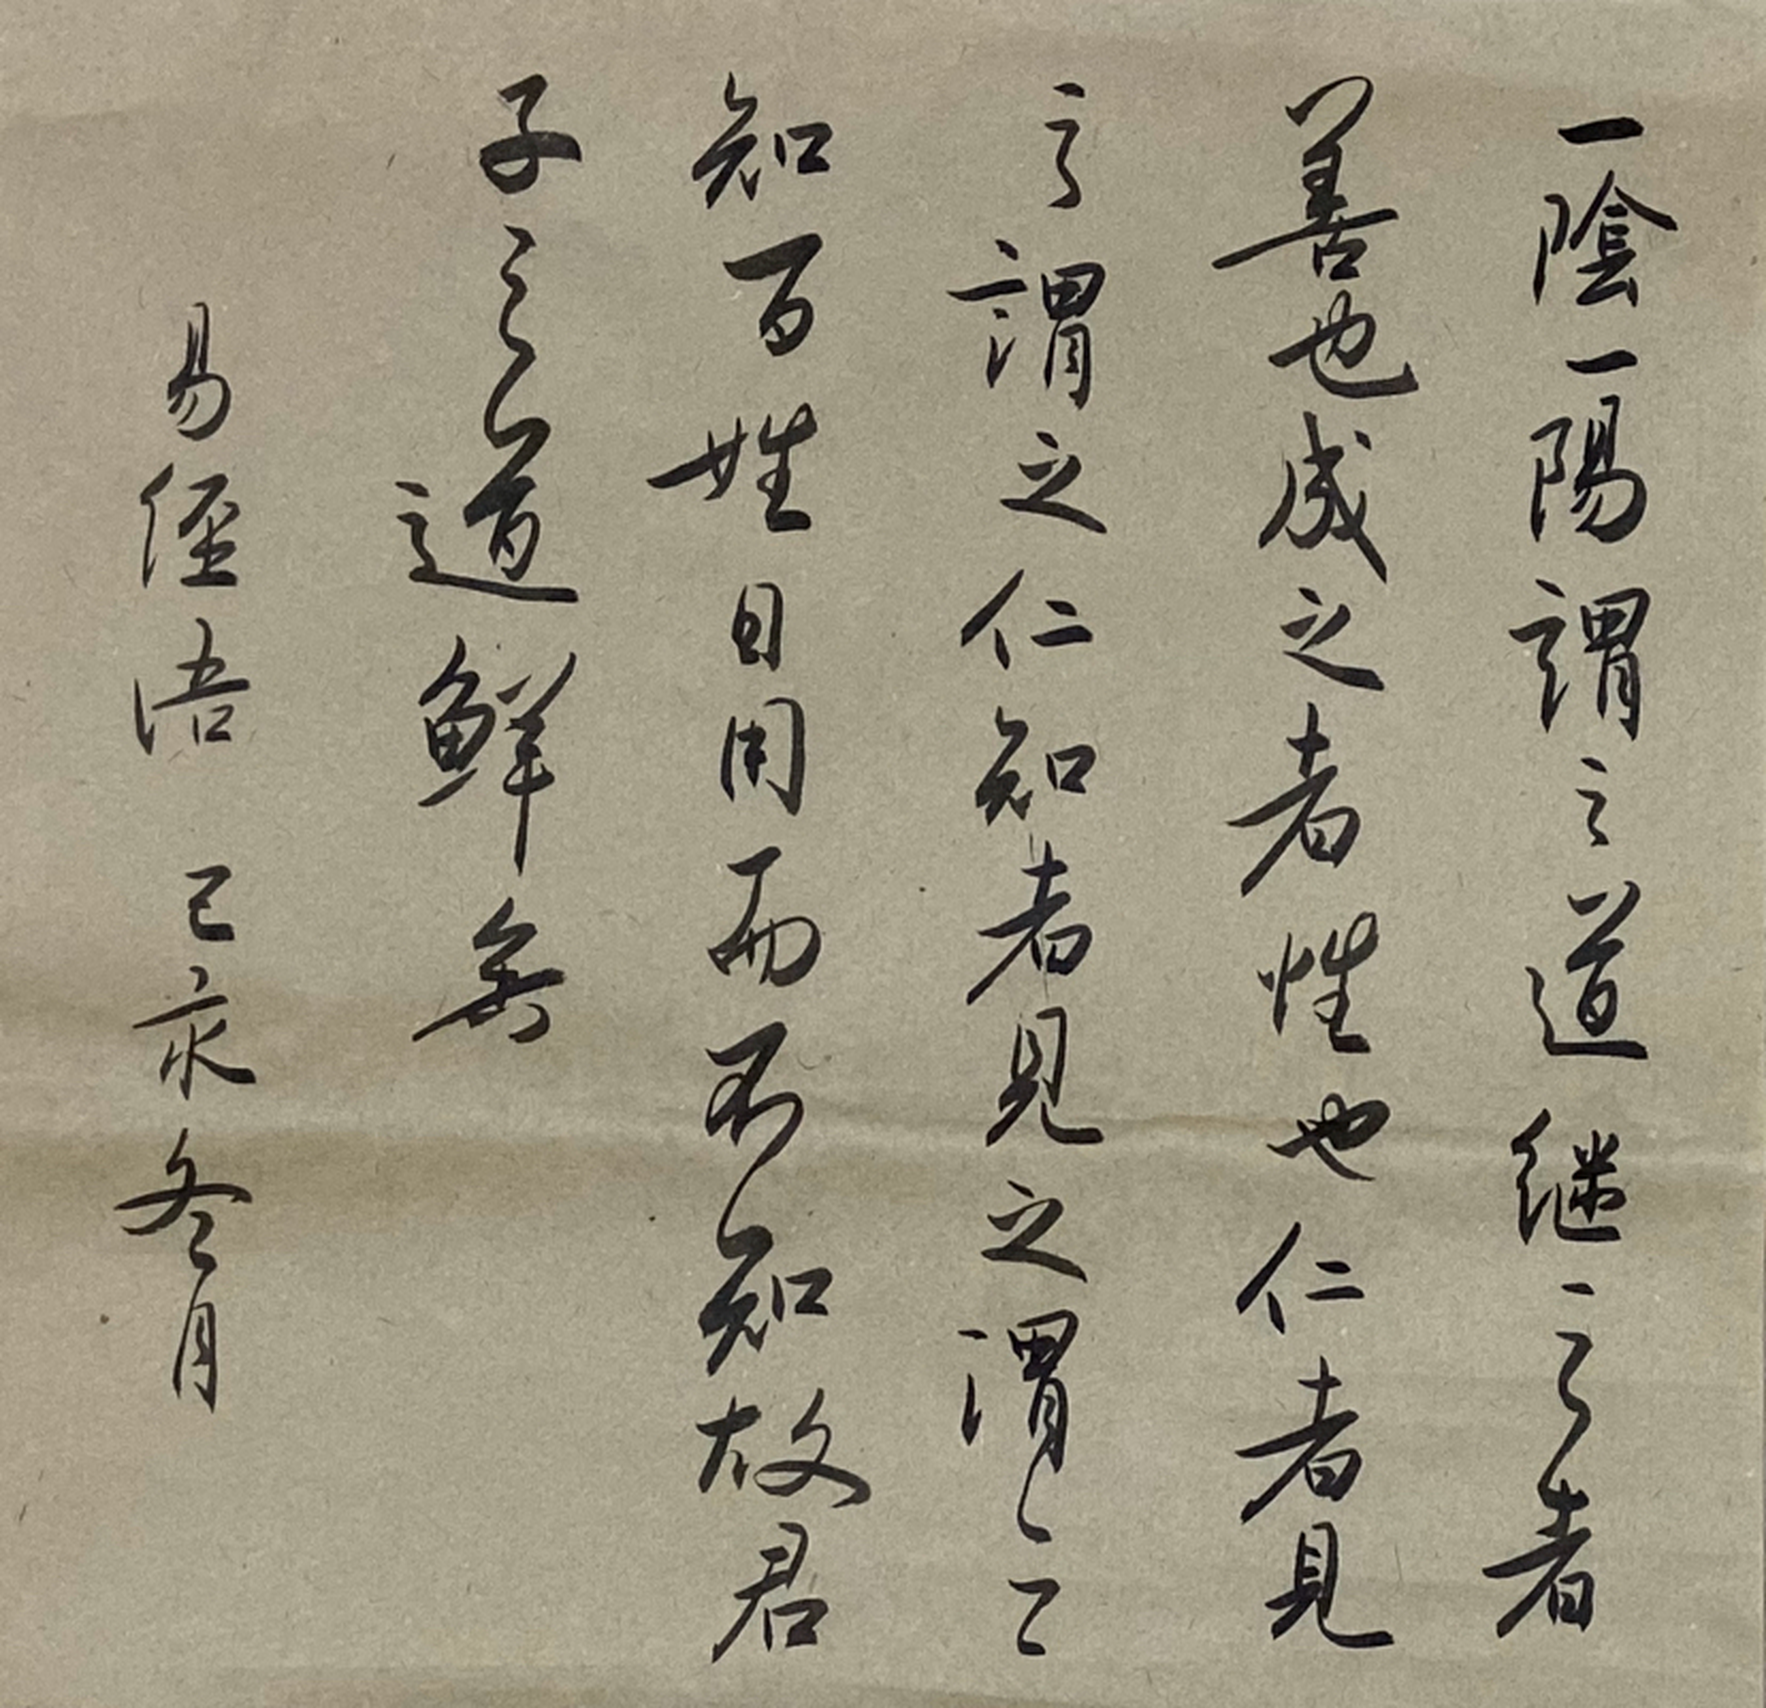 一陰一陽謂之道继之者
善也成之者性也仁者見
之謂之仁知者見之謂之
知百姓日用而不知故君
子之道鮮矣
易經语 己亥冬月